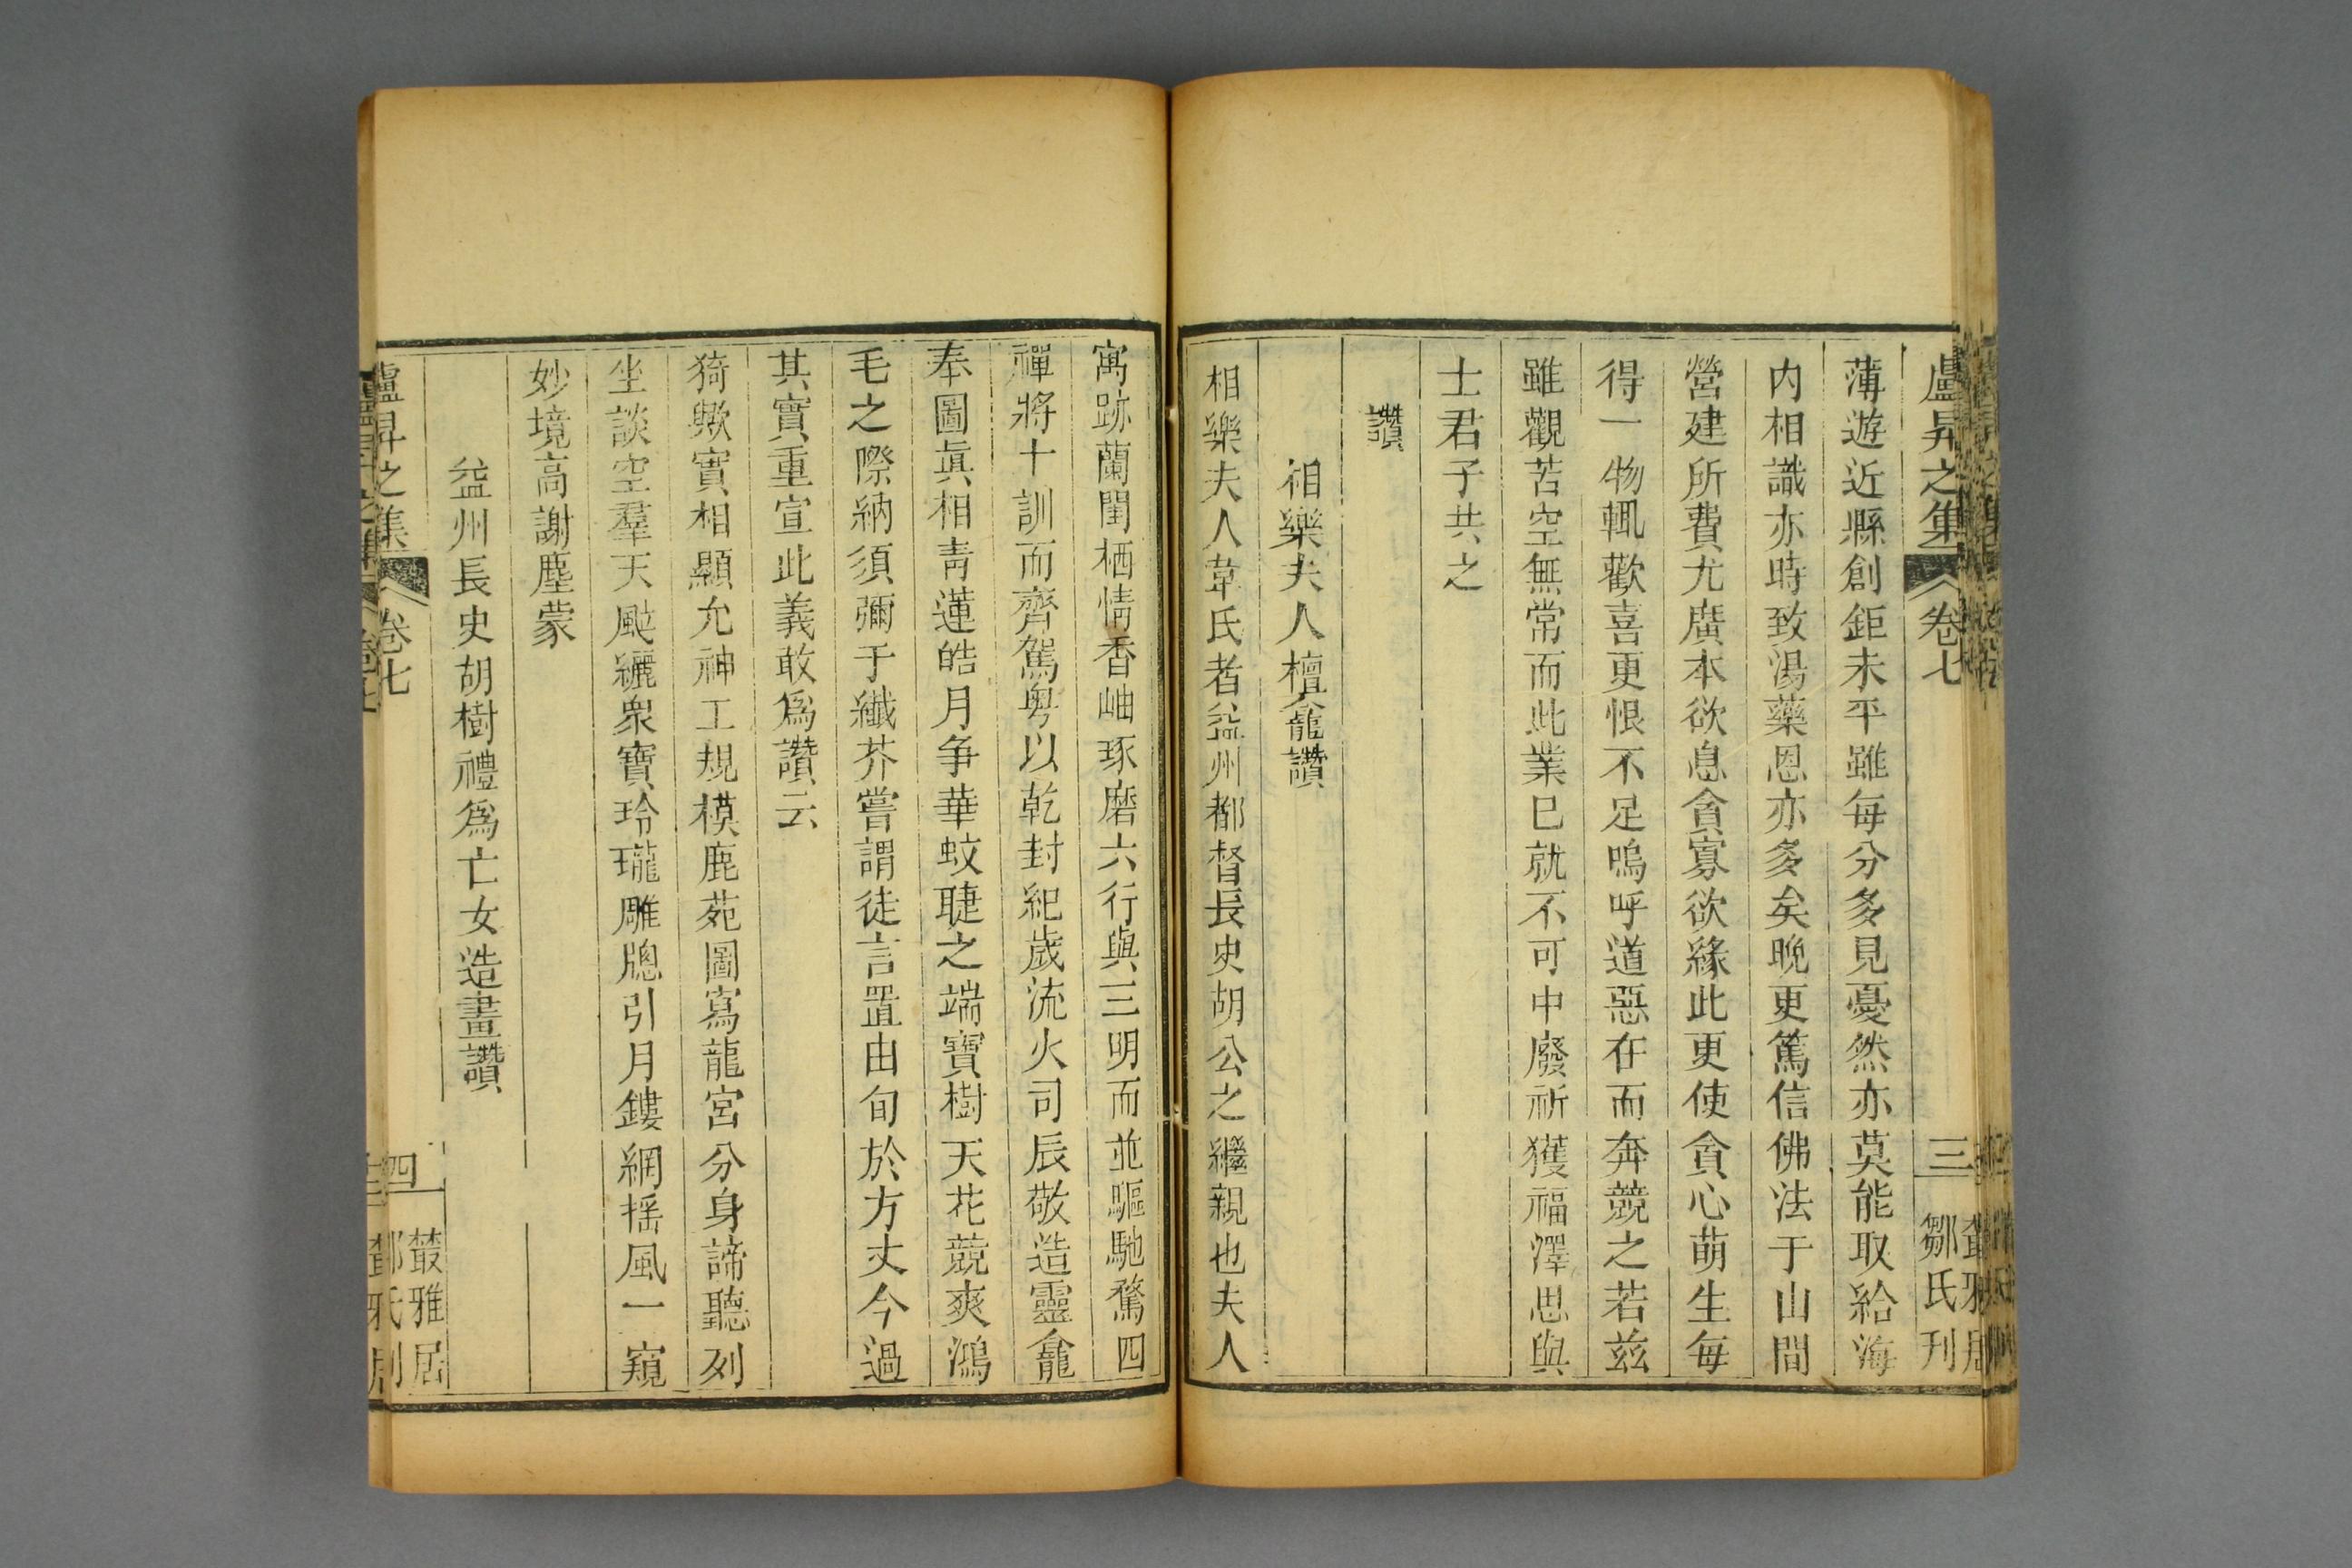 盧昇之集 卷七 三 鄒氏刊
薄遊近縣創鉅未平雖每分多見憂然亦莫能取給海
内相識亦時致湯藥恩亦多矣晚更篤信佛法于山間
營建所費尤廣本欲息貪寡欲緣此更使貪心萌生每
得一物輒歡喜更恨不足嗚呼道惡在而奔競之若兹
雖觀苦空無常而此業已就不可中廢祈獲福澤思與
士君子共之
讚
相樂夫人檀龕讚
相樂夫人韋氏者益州都督長史胡公之繼親也夫人
寓跡蘭閨栖情香岫琢磨六行與三明而並驅馳騖四
禪將十訓而齊駕粤以乾封紀歲流火司辰敬造靈龕
奉圖眞相靑蓮皓月争華蚊睫之端寶樹天花競爽鴻
毛之際納須彌于纖芥嘗謂徒言置由旬於方丈今過
其實重宣此義敢爲讚云
猗歟實相顯允神工規模鹿苑圖寫龍宮分身諦聽列
坐談空羣天颭纚衆寶玲瓏雕牎引月鏤網揺風一窺
妙境高謝塵蒙
益州長史胡樹禮爲亡女造畫讚
盧昇之集 卷七 四 叢雅居